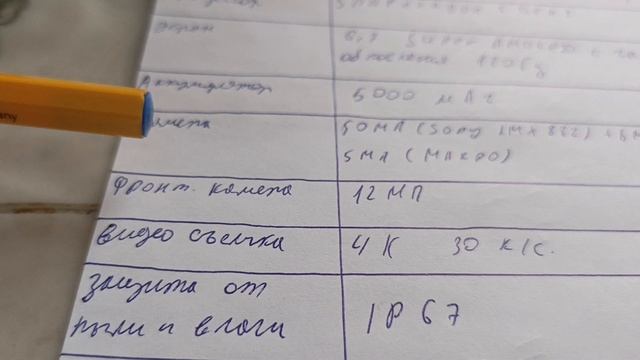 Экран
6.7 Super AMOLED с ча
обновления 120Гц
Аккумулятор
5000 мАч
камера
50МП (Sony IMX 882) +8М
5МП (МАКРО)
Фронт. камера
12 МП
Видео съемка
4К 30 к/с.
Защита от
пыли и влаги
IP 67